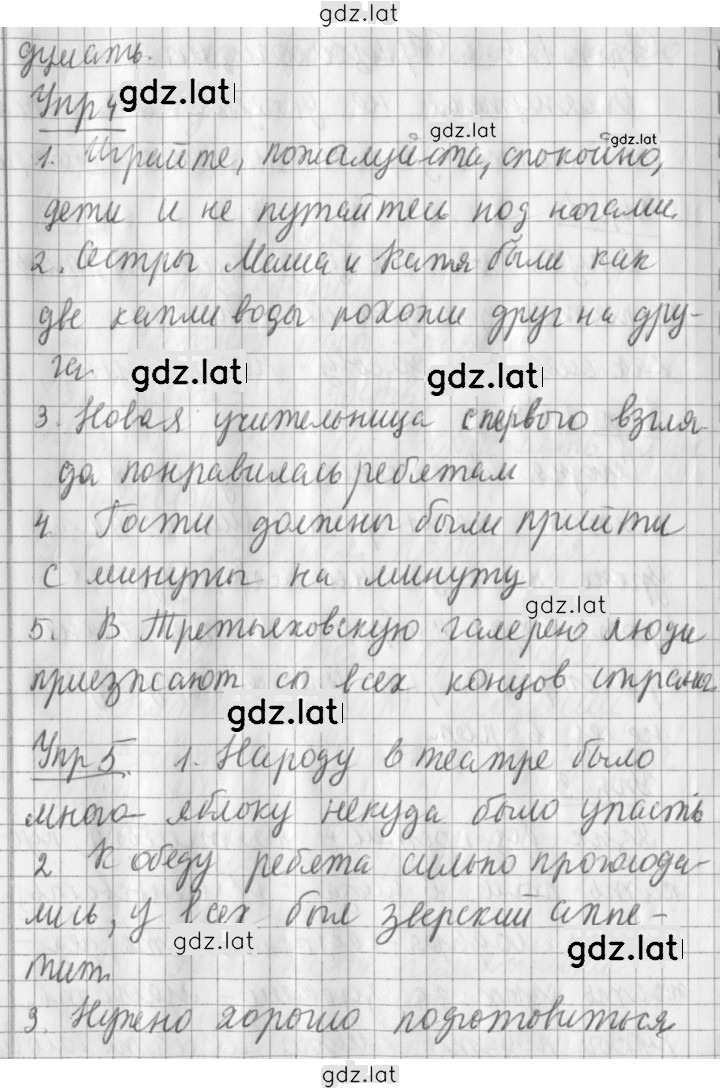 gdz.lat
думать.
Упр 4 gdz.lat
gdz.lat gdz.lat
1. Играйте, пожалуйста, спокойно,
дети и не путайтесь под ногами.
2. Сестры Маша и Катя были как
две капли воды похожи друг на дру-
га. gdz.lat gdz.lat
3. Новая учительница с первого взгля-
да понравилась ребятам
4. Гости должны были прийти
с минуты на минуту
gdz.lat
5. В Третьяковскую галерею люди
приезжают со всех концов страны
gdz.lat
Упр 5. 1. Народу в театре было
много - яблоку некуда было упасть
2 К обеду ребята сильно проголода-
лись, у всех был зверский аппе-
gdz.lat gdz.lat
тит.
3. Нужно хорошо подготовиться
gdz.lat